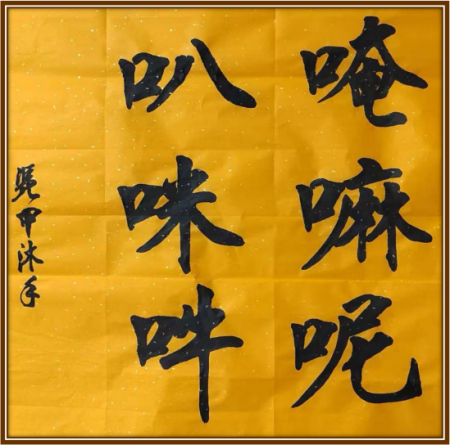 唵嘛呢
叭咪吽
甲沐手